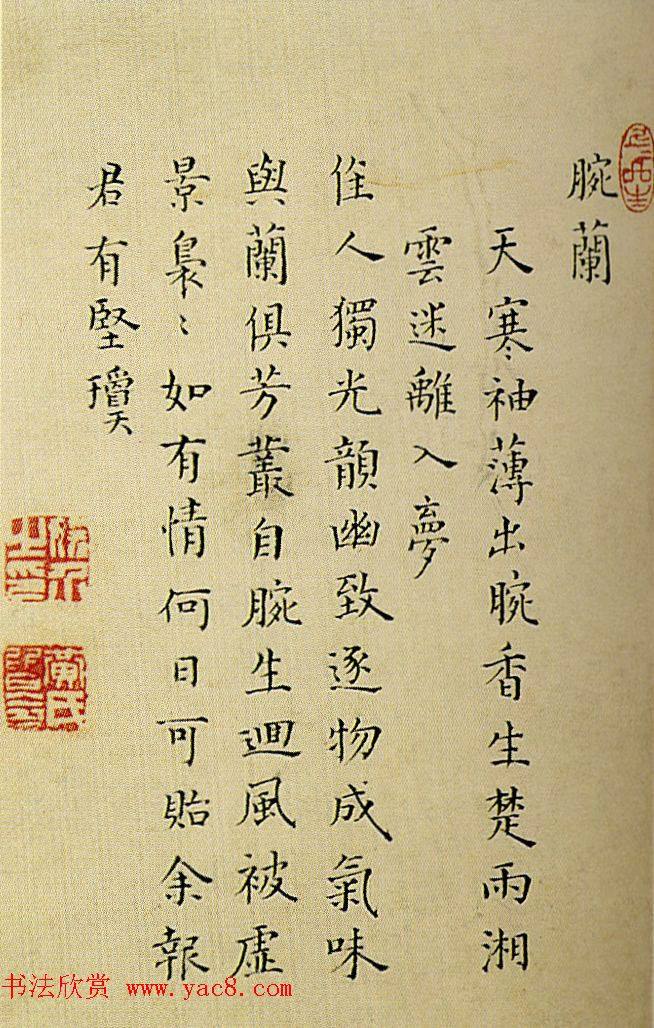 腕蘭
天寒袖薄出腕香生楚雨湘
雲迷離入夢
佳人獨光韻幽致逐物成氣味
與蘭俱芳叢自腕生迴風被虛
景裊〻如有情何日可貽余報
君有堅瓊
書法欣赏 www.yac8.com